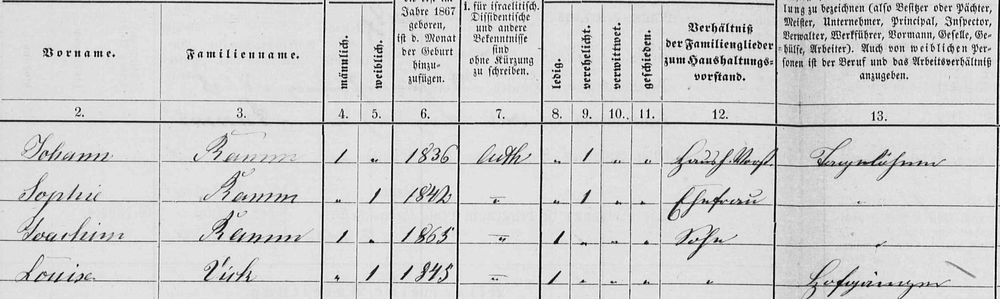 Vorname.
Familienname.
männlich.
weiblich.
Jahre 1867
geboren,
ist d. Monat
der Geburt
hinzu-
zufügen.
i. für israelitisch.
Dissidentische
und andere
Bekenntnisse
sind
ohne Kürzung
zu schreiben.
ledig.
verehelicht.
verwittwet.
geschieden.
Verhältniß
der Familienglieder
zum Haushaltungs-
vorstand.
lung zu bezeichnen (also Besitzer oder Pächter,
Meister, Unternehmer, Principal, Inspector,
Verwalter, Werkführer, Vormann, Geselle, Ge-
hülfe, Arbeiter). Auch von weiblichen Per-
sonen ist der Beruf und das Arbeitsverhältniß
anzugeben.
2. 3. 4. 5. 6. 7. 8. 9. 10. 11. 12. 13.
Johann Ramm 1 " 1836 luth " 1 " " Haush. Vorst. Tagelöhner
Sophie Ramm " 1 1842 " " 1 " " Ehefrau "
Joachim Ramm 1 " 1865 " 1 " " " Sohn "
Louise Vick " 1 1845 " 1 " " " " Hofgänger